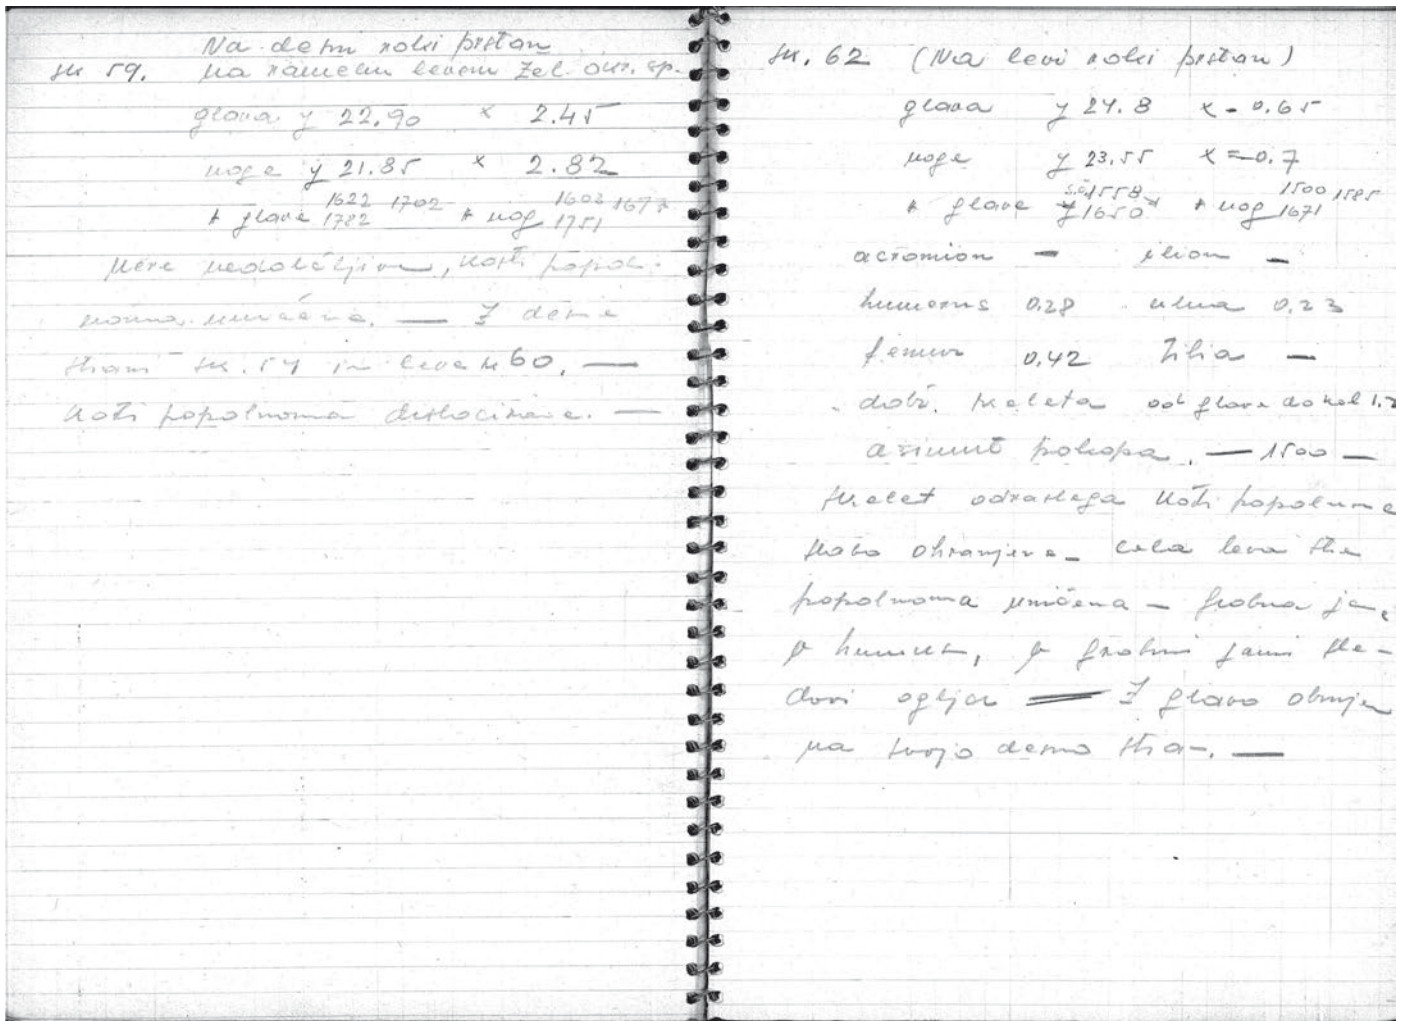 Na desni roki prstan
sk 59. na ramenu levem žel. okr. sp.
glava y 22.90 x 2.45
noge y 21.85 x 2.82
1622 1702 1602 167
* glave 1782 * nog 1751
Mere nedobčljive, kosti popol-
noma uničene. — Z desne
strani sk. 54 in leve sk 60. —
Kosti popolnoma dislocirane. —
sk. 62 (Na levi roki prstan)
glava y 24.8 x - 0.65
noge y 23.55 x = 0.7
1558 1500 1585
* glave 1650 * nog 1671
acromion — ilion —
humerus 0.28 ulna 0.23
femur 0.42 tibia —
dolž. skeleta od glave do kol 1.2
azimut pokopa. — 1500 —
skelet odraslega kosti popolnoma
slabo ohranjene - cela leva stra
popolnoma uničena - grobna ja
v humusu, v grobni jami sle-
dovi oglja — Z glavo obrnjen
na svojo desno stran. —